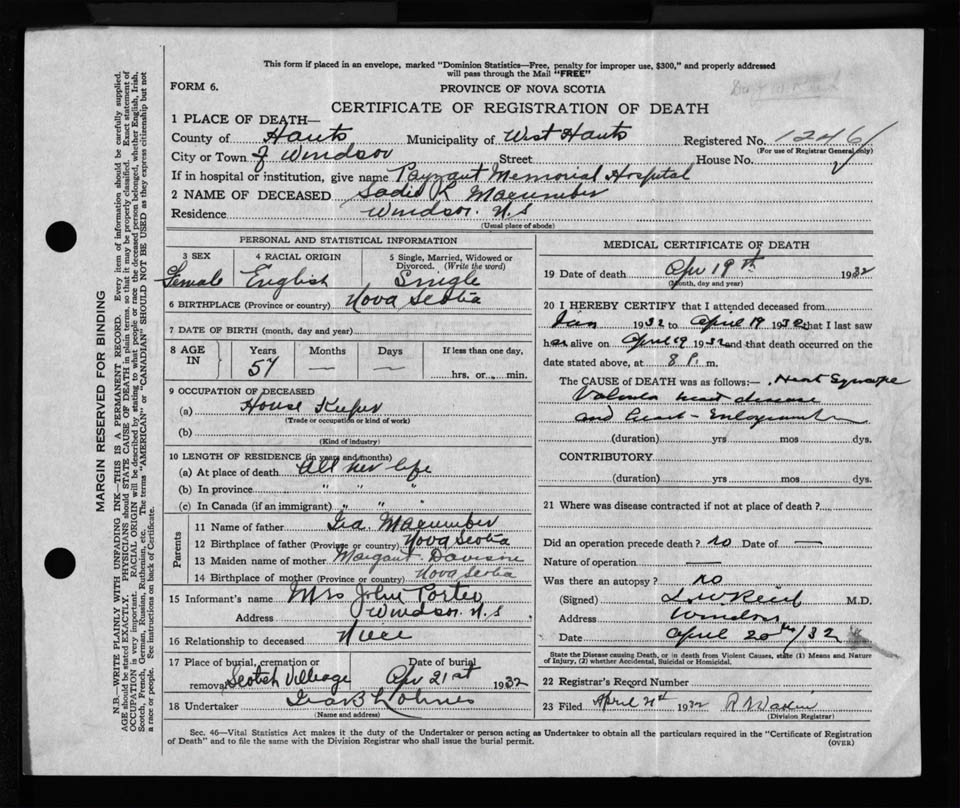 This form if placed in an envelope, marked "Dominion Statistics—Free, penalty for improper use, $300," and properly addressed
will pass through the Mail "FREE"
FORM 6.
PROVINCE OF NOVA SCOTIA
CERTIFICATE OF REGISTRATION OF DEATH
1 PLACE OF DEATH—
County of Hants Municipality of West Hants Registered No. 1246
(For use of Registrar General only)
City or Town of Windsor Street House No.
If in hospital or institution, give name Payzant Memorial Hospital
2 NAME OF DECEASED Sadie R Macumber
Residence Windsor. N.S
(Usual place of abode)
PERSONAL AND STATISTICAL INFORMATION
3 SEX 4 RACIAL ORIGIN 5 Single, Married, Widowed or
Divorced. (Write the word)
Female English Single
6 BIRTHPLACE (Province or country) Nova Scotia
7 DATE OF BIRTH (month, day and year)
8 AGE IN Years Months Days If less than one day,
57 — — hrs. or min.
9 OCCUPATION OF DECEASED
(a) House Keeper
(Trade or occupation or kind of work)
(b)
(Kind of industry)
10 LENGTH OF RESIDENCE (in years and months)
(a) At place of death All her life
(b) In province " " "
(c) In Canada (if an immigrant) " " "
Parents
11 Name of father Ira Macumber
12 Birthplace of father (Province or country) Nova Scotia
13 Maiden name of mother Margaret Davison
14 Birthplace of mother (Province or country) Nova Scotia
15 Informant's name Mrs John Porter
Address Windsor. N.S
16 Relationship to deceased Niece
17 Place of burial, cremation or Date of burial
removal Scotch Village Apr 21st 1932
18 Undertaker Ira B
(Name and address)
MEDICAL CERTIFICATE OF DEATH
19 Date of death Apr 19th 1932
(Month, day and year)
20 I HEREBY CERTIFY that I attended deceased from
Jan 1932 to April 19 1932 that I last saw
her alive on April 19 1932 and that death occurred on the
date stated above, at 8 P. m.
The CAUSE OF DEATH was as follows:— Heart Syncope
Valvular heart disease
and heart - Enlargement
(duration) yrs mos dys.
CONTRIBUTORY
(duration) yrs mos dys.
21 Where was disease contracted if not at place of death?
Did an operation precede death? no Date of —
Nature of operation —
Was there an autopsy? no
(Signed) Reid M.D.
Address Windsor
Date April 20th/32
State the Disease causing Death, or in death from Violent Causes, state (1) Means and Nature
of Injury, (2) whether Accidental, Suicidal or Homicidal.
22 Registrar's Record Number
23 Filed April 1932 R
(Division Registrar)
Sec. 46—Vital Statistics Act makes it the duty of the Undertaker or person acting as Undertaker to obtain all the particulars required in the "Certificate of Registration
of Death" and to file the same with the Division Registrar who shall issue the burial permit.
(OVER)
MARGIN RESERVED FOR BINDING
N.B.—WRITE PLAINLY WITH UNFADING INK—THIS IS A PERMANENT RECORD. Every item of information should be carefully supplied.
AGE should be stated EXACTLY. PHYSICIANS should STATE CAUSE OF DEATH in plain terms, so that it may be properly classified. Exact statement of
OCCUPATION is very important. RACIAL ORIGIN will be described by stating to what people or race the deceased person belonged, whether English, Irish,
Scotch, French, German, Russian, Ruthenian, etc. The terms "AMERICAN" or "CANADIAN" SHOULD NOT BE USED as they express citizenship but not
a race or people. See instructions on back of Certificate.